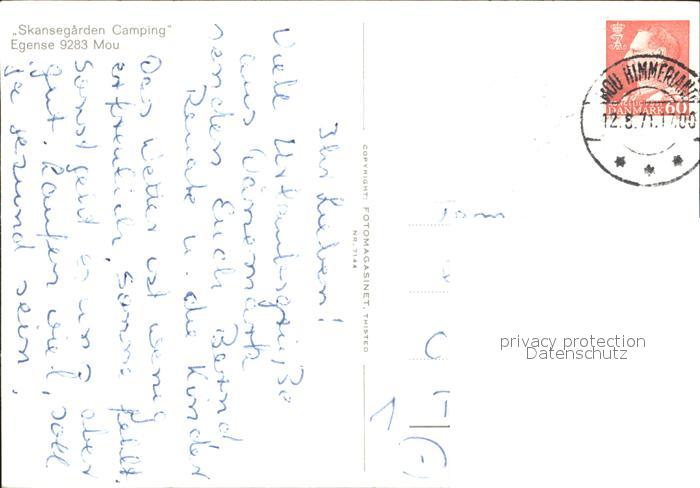 „Skansegården Camping"
Egense 9283 Mou
Ihr Lieben!
Viele Urlaubsgrüße
aus Dänemark
senden Euch Bernd
Renate u. die Kinder
Das Wetter ist wenig
erfreulich, Sonne fehlt.
Sonst geht es uns aber
gut. Laufen viel, soll
ja gesund sein.
COPYRIGHT: FOTOMAGASINET, THISTED
NR. 7144
MOU HIMMERLAND
12.8.71.17.00
DANMARK 60
Fam
privacy protection
Datenschutz